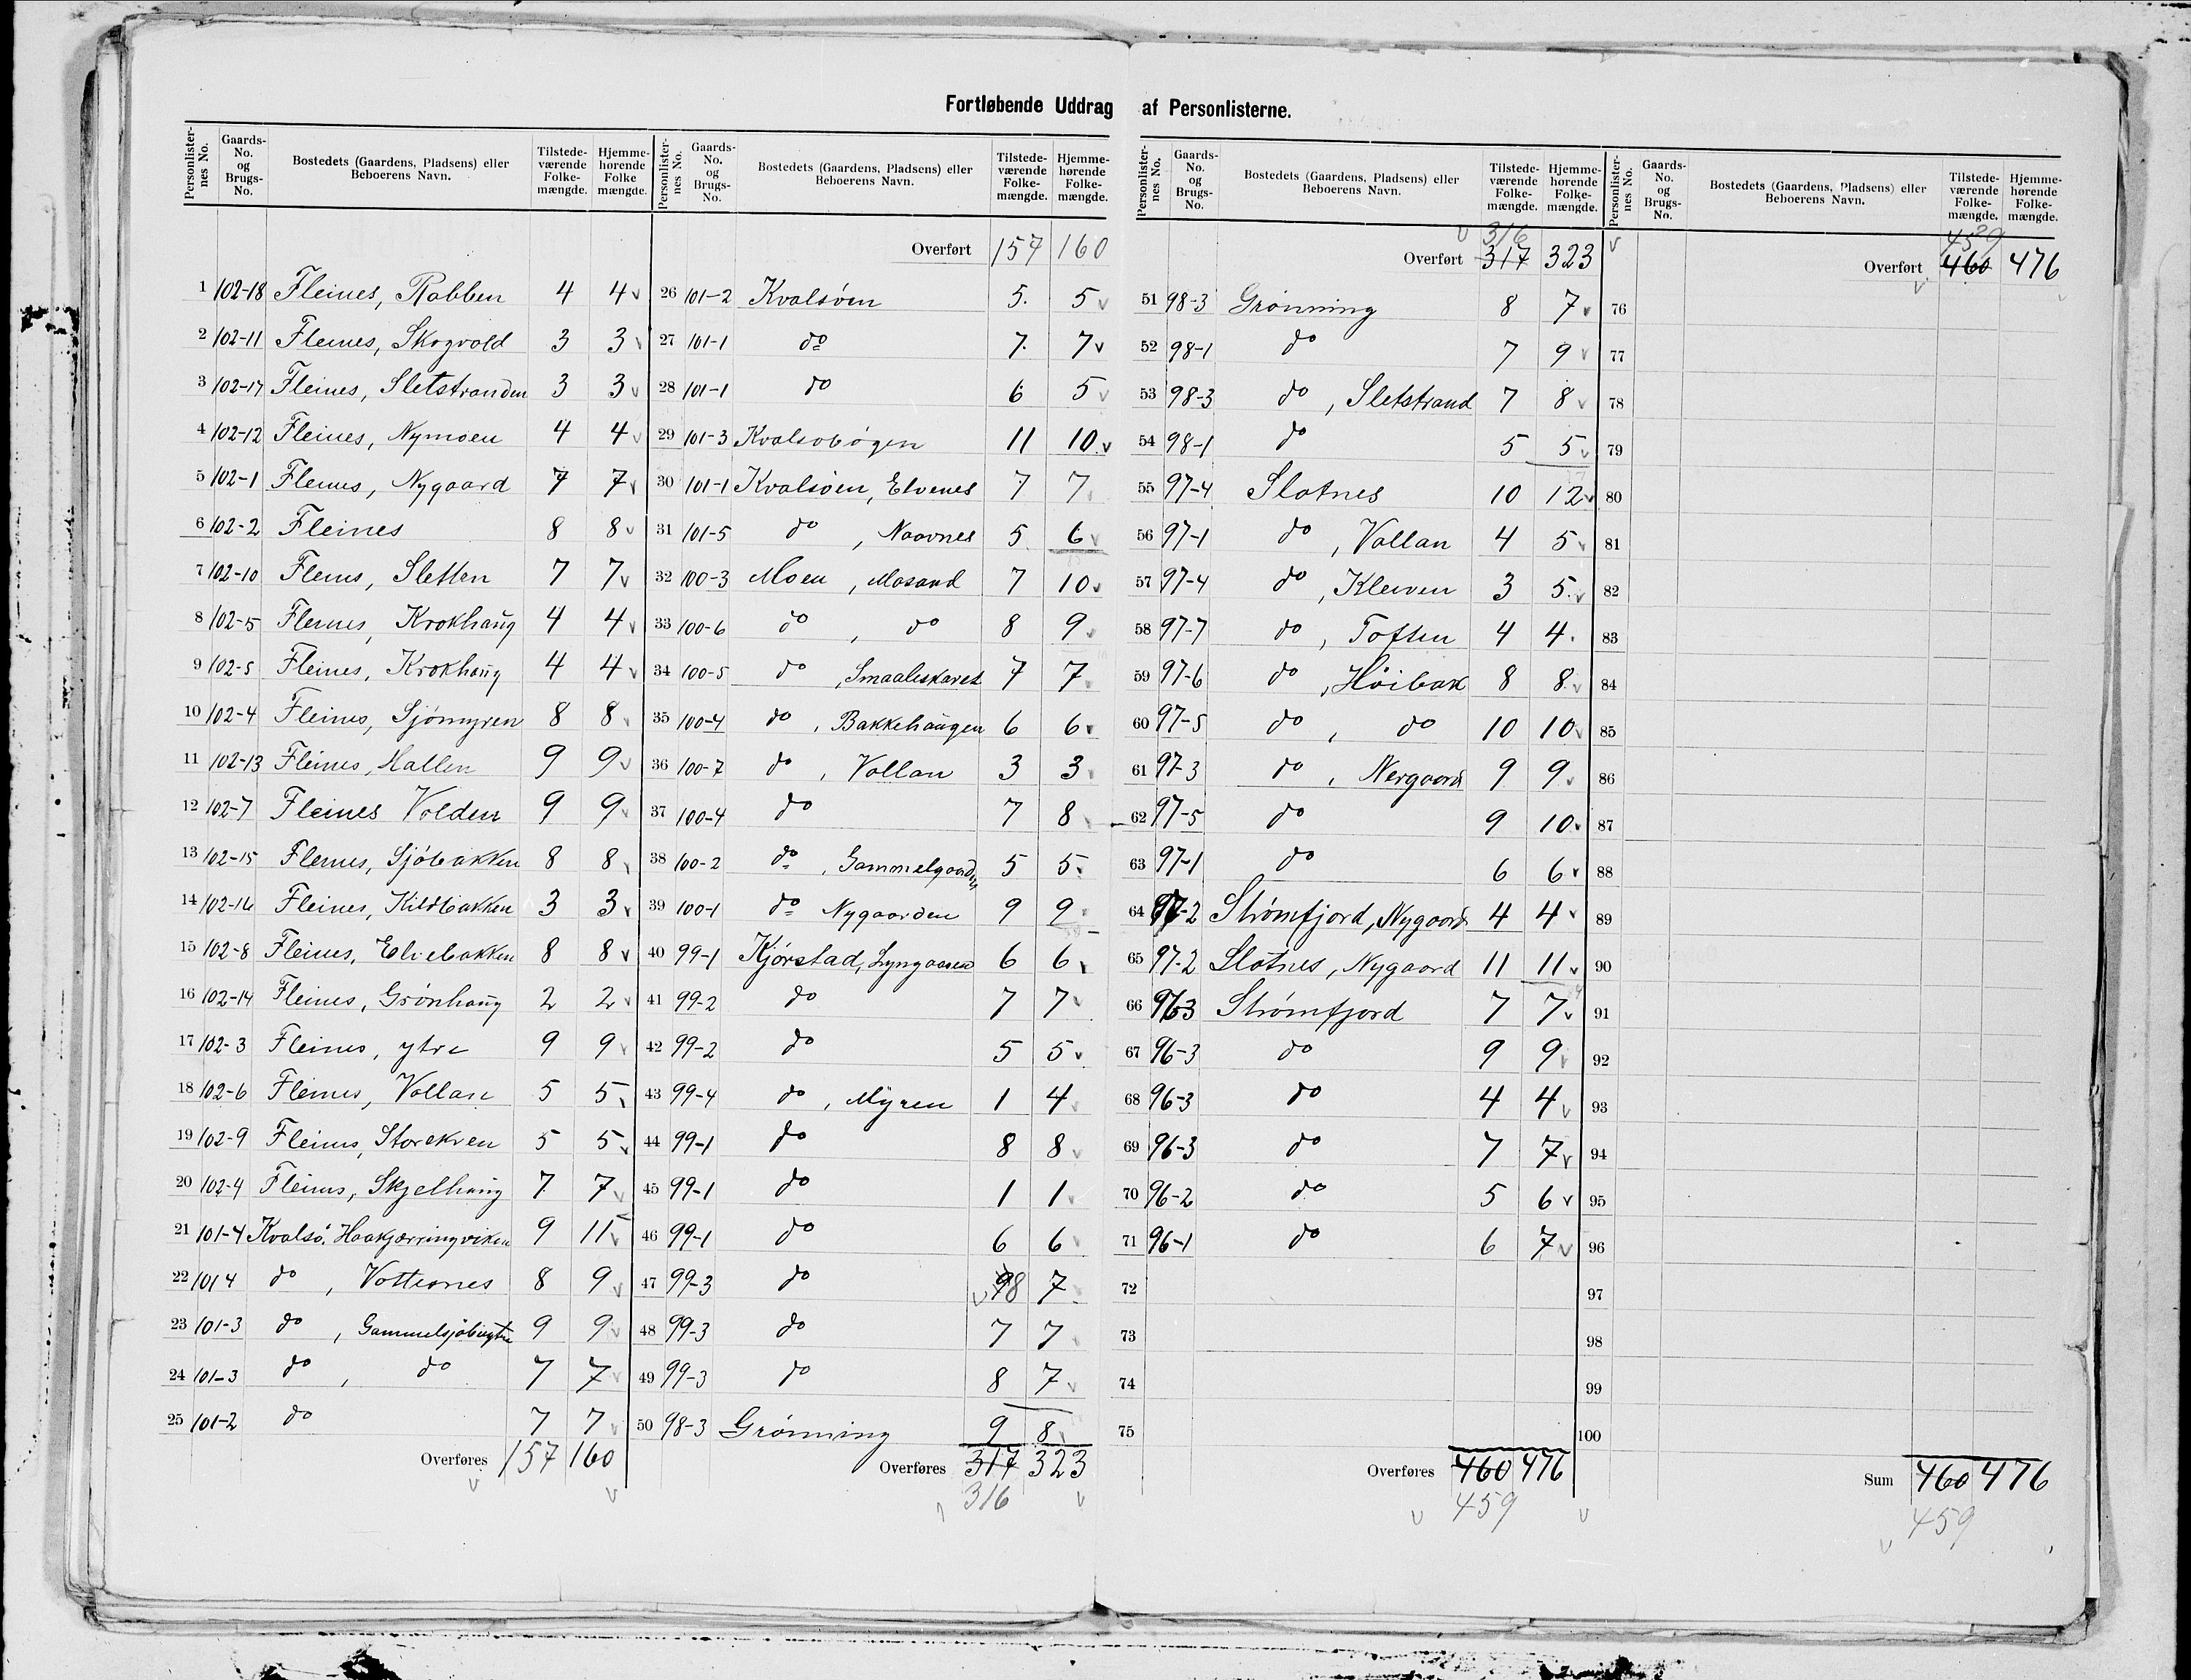 Fortløbende Uddrag af Personlisterne.
Personlister-nes No. | Gaards-No. og Brugs-No. | Bostedets (Gaardens, Pladsens) eller Beboerens Navn. | Tilstede-værende Folke-mængde. | Hjemme-hørende Folke mængde.
1 102-18 Fleines, Rabben 4 4
2 102-11 Fleines, Skogvold 3 3
3 102-17 Fleines, Sletstranden 3 3
4 102-12 Fleines, Nymoen 4 4
5 102-1 Fleines, Nygaard 7 7
6 102-2 Fleines 8 8
7 102-10 Fleines, Sletten 7 7
8 102-5 Fleines, Krokhaug 4 4
9 102-5 Fleines, Krokhaug 4 4
10 102-4 Fleines, Sjømyren 8 8
11 102-13 Fleines, Hallen 9 9
12 102-7 Fleines Volden 9 9
13 102-15 Fleines, Sjöbakken 8 8
14 102-16 Fleines, Kildbakken 3 3
15 102-8 Fleines, Elvebakken 8 8
16 102-14 Fleines, Grønhaug 2 2
17 102-3 Fleines, ytre 9 9
18 102-6 Fleines, Vollan 5 5
19 102-9 Fleines, Storekven 5 5
20 102-4 Fleines, Skjelhaug 7 7
21 101-4 Kvalsø, Haakjærringviken 9 11
22 101 4 do, Votternes 8 9
23 101-3 do, Gammelsjøbugten 9 9
24 101-3 do, do 7 7
25 101-2 do 7 7
Overføres 157 160
Personlister-nes No. | Gaards-No. og Brugs-No. | Bostedets (Gaardens, Pladsens) eller Beboerens Navn. | Tilstede-værende Folke-mængde. | Hjemme-hørende Folke-mængde.
Overført 157 160
26 101-2 Kvalsøen 5. 5
27 101-1 do 7. 7
28 101-1 do 6 5
29 101-3 Kvalsobøgen 11 10
30 101-1 Kvalsøen, Elvenes 7 7
31 101-5 do, Naavnes 5 6
32 100-3 Moen, Mosand 7 10
33 100-6 do, do 8 9
34 100-5 do, Smaaleskaret 7 7
35 100-4 do, Bakkehaugen 6 6
36 100-7 do, Vollan 3 3
37 100-4 do 7 8
38 100-2 do, Gammelgaarden 5 5
39 100-1 do Nygaarden 9 9
40 99-1 Kjørstad, Lyngaasen 6 6
41 99-2 do 7 7
42 99-2 do 5 5
43 99-4 do, Myren 1 4
44 99-1 do 8 8
45 99-1 do 1 1
46 99-1 do 6 6
47 99-3 do 8 7
48 99-3 do 7 7
49 99-3 do 8 7
50 98-3 Grønning 9 8
Overføres 317 323
316
Personlister-nes No. | Gaards-No. og Brugs-No. | Bostedets (Gaardens, Pladsens) eller Beboerens Navn. | Tilstede-værende Folke-mængde. | Hjemme-hørende Folke-mængde.
316
Overført 317 323
51 98-3 Grønning 8 7
52 98-1 do 7 9
53 98-3 do, Sletstrand 7 8
54 98-1 do 5 5
55 97-4 Slotnes 10 12
56 97-1 do, Vollan 4 5
57 97-4 do, Kleiven 3 5
58 97-7 do, Toften 4 4
59 97-6 do, Høibak 8 8
60 97-5 do, do 10 10
61 97-3 do, Nergaard 9 9
62 97-5 do 9 10
63 97-1 do 6 6
64 97-2 Strømfjord, Nygaard 4 4
65 97-2 Slotnes, Nygaard 11 11
66 96-3 Strømfjord 7 7
67 96-3 do 9 9
68 96-3 do 4 4
69 96-3 do 7 7
70 96-2 do 5 6
71 96-1 do 6 7
72
73
74
75
Overføres 460 476
459
Personlister-nes No. | Gaards-No. og Brugs-No. | Bostedets (Gaardens, Pladsens) eller Beboerens Navn. | Tilstede-værende Folke-mængde. | Hjemme-hørende Folke-mængde.
459
Overført 460 476
76
77
78
79
80
81
82
83
84
85
86
87
88
89
90
91
92
93
94
95
96
97
98
99
100
Sum 460 476
459